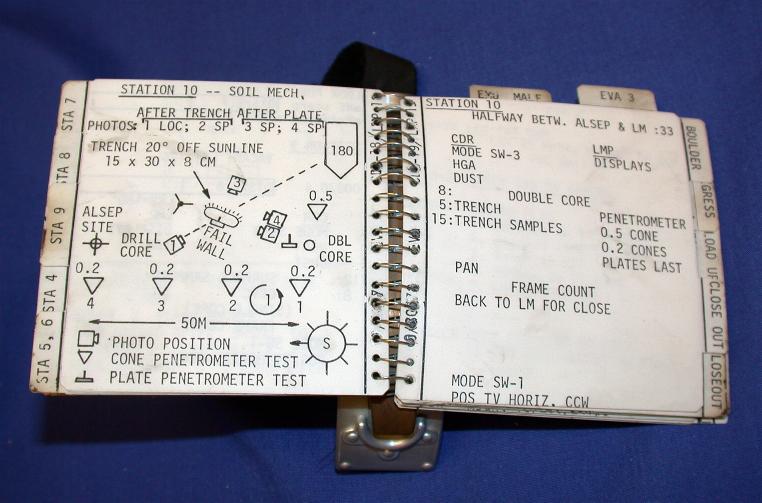 STATION 10 -- SOIL MECH.
AFTER TRENCH AFTER PLATE
PHOTOS: 1 LOC; 2 SP; 3 SP; 4 SP
TRENCH 20° OFF SUNLINE
15 x 30 x 8 CM
180
3
0.5
ALSEP
SITE
DRILL
CORE
1
FAIL
WALL
4
2
DBL
CORE
0.2 0.2 0.2 0.2
4 3 2 1 1
50M
S
PHOTO POSITION
CONE PENETROMETER TEST
PLATE PENETROMETER TEST
STA 7
STA 8
STA 9
STA 4
STA 5, 6
EVA 3
STATION 10
HALFWAY BETW. ALSEP & LM :33
CDR
MODE SW-3 LMP
HGA DISPLAYS
DUST
8: DOUBLE CORE
5:TRENCH
15:TRENCH SAMPLES PENETROMETER
0.5 CONE
0.2 CONES
PAN PLATES LAST
FRAME COUNT
BACK TO LM FOR CLOSE
MODE SW-1
POS TV HORIZ. CCW
BOULDER
GRESS
LOAD UP
CLOSE OUT
LOSEOUT